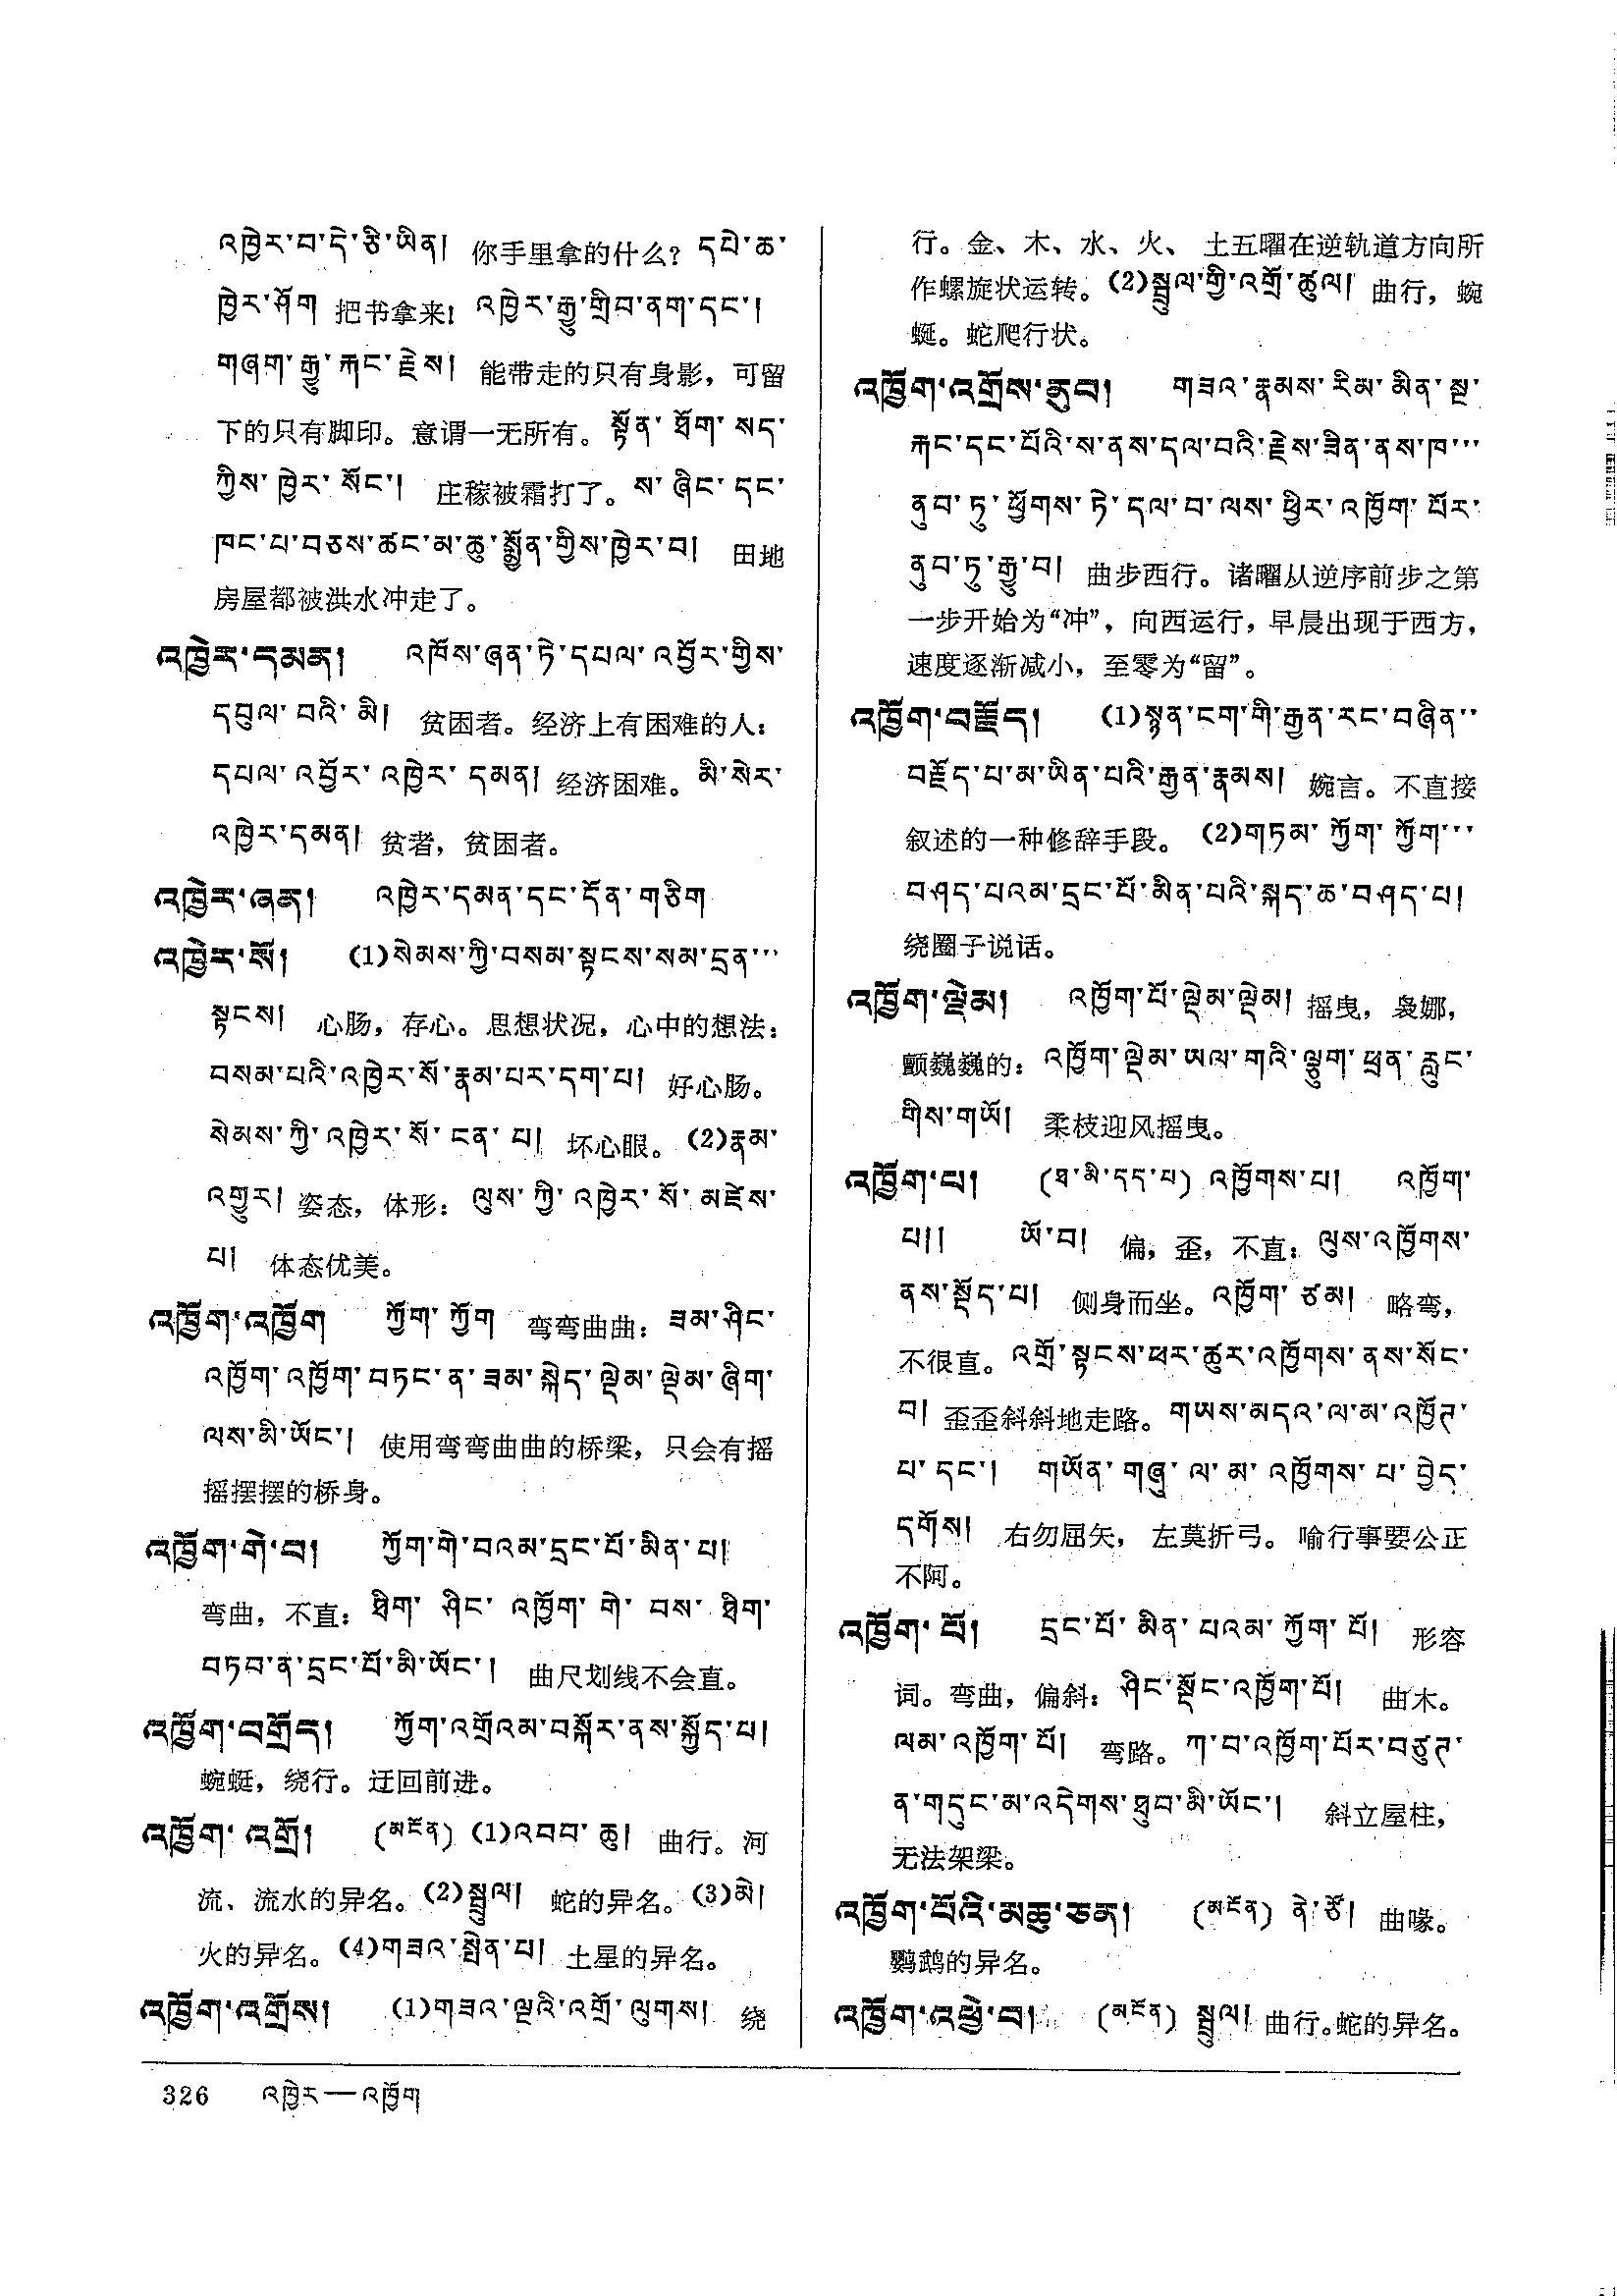 འཁྱེར་བ་དེ་ཅི་ཡིན། 你手里拿的什么？དཔེ་ཆ་
ཁྱེར་ཤོག 把书拿来！འཁྱེར་རྒྱུ་གྲིབ་ནག་དང་།
གཞག་རྒྱུ་རྐང་རྗེས། 能带走的只有身影，可留
下的只有脚印。意谓一无所有。སྟོན་ཐོག་སད་
ཀྱིས་ཁྱེར་སོང་། 庄稼被霜打了。ས་ཞིང་དང་
ཁང་པ་བཅས་ཚང་མ་ཆུ་སྨྱོན་གྱིས་ཁྱེར་བ། 田地
房屋都被洪水冲走了。
འཁྱེར་དམན། འཁོས་ཞན་ཏེ་དཔལ་འབྱོར་གྱིས་
དབུལ་བའི་མི། 贫困者。经济上有困难的人：
དཔལ་འབྱོར་འཁྱེར་དམན། 经济困难。མི་སེར་
འཁྱེར་དམན། 贫者，贫困者。
འཁྱེར་ཞན། འཁྱེར་དམན་དང་དོན་གཅིག
འཁྱེར་སོ། (1)སེམས་ཀྱི་བསམ་སྟངས་སམ་དྲན་་་
སྟངས། 心肠，存心。思想状况，心中的想法：
བསམ་པའི་འཁྱེར་སོ་རྣམ་པར་དག་པ། 好心肠。
སེམས་ཀྱི་འཁྱེར་སོ་ངན་པ། 坏心眼。(2)རྣམ་
འགྱུར། 姿态，体形：ལུས་ཀྱི་འཁྱེར་སོ་མཛེས་
པ། 体态优美。
འཁྱོག་འཁྱོག ཀྱོག་ཀྱོག 弯弯曲曲：ཟམ་ཤིང་
འཁྱོག་འཁྱོག་བཏང་ན་ཟམ་སྐེད་ལྡེམ་ལྡེམ་ཞིག་
ལས་མི་ཡོང་། 使用弯弯曲曲的桥梁，只会有摇
摇摆摆的桥身。
འཁྱོག་གེ་བ། ཀྱོག་གེ་བའམ་དྲང་པོ་མིན་པ།
弯曲，不直：ཐིག་ཤིང་འཁྱོག་གེ་བས་ཐིག་
བཏབ་ན་དྲང་པོ་མི་ཡོང་། 曲尺划线不会直。
འཁྱོག་བགྲོད། ཀྱོག་འགྲོའམ་བསྐོར་ནས་སྐྱོད་པ།
蜿蜒，绕行。迂回前进。
འཁྱོག་འགྲོ། (མངོན) (1)འབབ་ཆུ། 曲行。河
流、流水的异名。(2)སྦྲུལ། 蛇的异名。(3)མེ།
火的异名。(4)གཟའ་སྤེན་པ། 土星的异名。
འཁྱོག་འགྲོས། (1)གཟའ་ལྔའི་འགྲོ་ལུགས། 绕
行。金、木、水、火、土五曜在逆轨道方向所
作螺旋状运转。(2)སྦྲུལ་གྱི་འགྲོ་ཚུལ། 曲行，蜿
蜒。蛇爬行状。
འཁྱོག་འགྲོས་ནུབ། གཟའ་རྣམས་རིམ་མིན་སྔ་
རྐང་དང་པོའི་ས་ནས་དལ་བའི་རྗེས་ཟིན་ནས་ཁ་་་
ནུབ་ཏུ་ཕྱོགས་ཏེ་དལ་བ་ལས་ཕྱིར་འཁྱོག་པོར་
ནུབ་ཏུ་རྒྱུ་བ། 曲步西行。诸曜从逆序前步之第
一步开始为“冲”，向西运行，早晨出现于西方，
速度逐渐减小，至零为“留”。
འཁྱོག་བརྗོད། (1)སྙན་ངག་གི་རྒྱན་རང་བཞིན་་
བརྗོད་པ་མ་ཡིན་པའི་རྒྱན་རྣམས། 婉言。不直接
叙述的一种修辞手段。(2)གཏམ་ཀྱོག་ཀྱོག་་་
བཤད་པའམ་དྲང་པོ་མིན་པའི་སྐད་ཆ་བཤད་པ།
绕圈子说话。
འཁྱོག་ལྡེམ། འཁྱོག་པོ་ལྡེམ་ལྡེམ། 摇曳，袅娜，
颤巍巍的：འཁྱོག་ལྡེམ་ཡལ་གའི་ལྕུག་ཕྲན་རླུང་
གིས་གཡོ། 柔枝迎风摇曳。
འཁྱོག་པ། (ཐ་མི་དད་པ) འཁྱོགས་པ། འཁྱོག་
པ།། ཡོ་བ། 偏，歪，不直：ལུས་འཁྱོགས་
ནས་སྡོད་པ། 侧身而坐。འཁྱོག་ཙམ། 略弯，
不很直。འགྲོ་སྟངས་ཕར་ཚུར་འཁྱོགས་ནས་སོང་
བ། 歪歪斜斜地走路。གཡས་མདའ་ལ་མ་འཁྱོག་
པ་དང་། གཡོན་གཞུ་ལ་མ་འཁྱོགས་པ་བྱེད་
དགོས། 右勿屈矢，左莫折弓。喻行事要公正
不阿。
འཁྱོག་པོ། དྲང་པོ་མིན་པའམ་ཀྱོག་པོ། 形容
词。弯曲，偏斜：ཤིང་སྡོང་འཁྱོག་པོ། 曲木。
ལམ་འཁྱོག་པོ། 弯路。ཀ་བ་འཁྱོག་པོར་བཙུགས་
ན་གདུང་མ་འདེགས་ཐུབ་མི་ཡོང་། 斜立屋柱，
无法架梁。
འཁྱོག་པོའི་མཆུ་ཅན། (མངོན) ནེ་ཙོ། 曲喙。
鹦鹉的异名。
འཁྱོག་འཕྱེ་བ། (མངོན) སྦྲུལ། 曲行。蛇的异名。
326 འཁྱེར—འཁྱོག